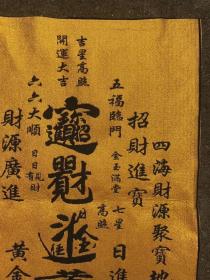 四海財源聚寶地
招財進寶
日進
五福臨門
金玉滿堂
七星高照
吉星高照
開運大吉
六六大順
日日有見財
財源廣進
黃金